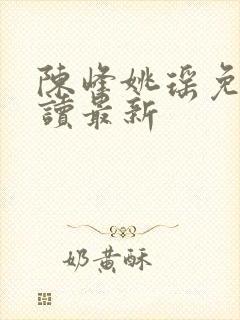 陳峰姚瑶免
讀最新
奶黄酥